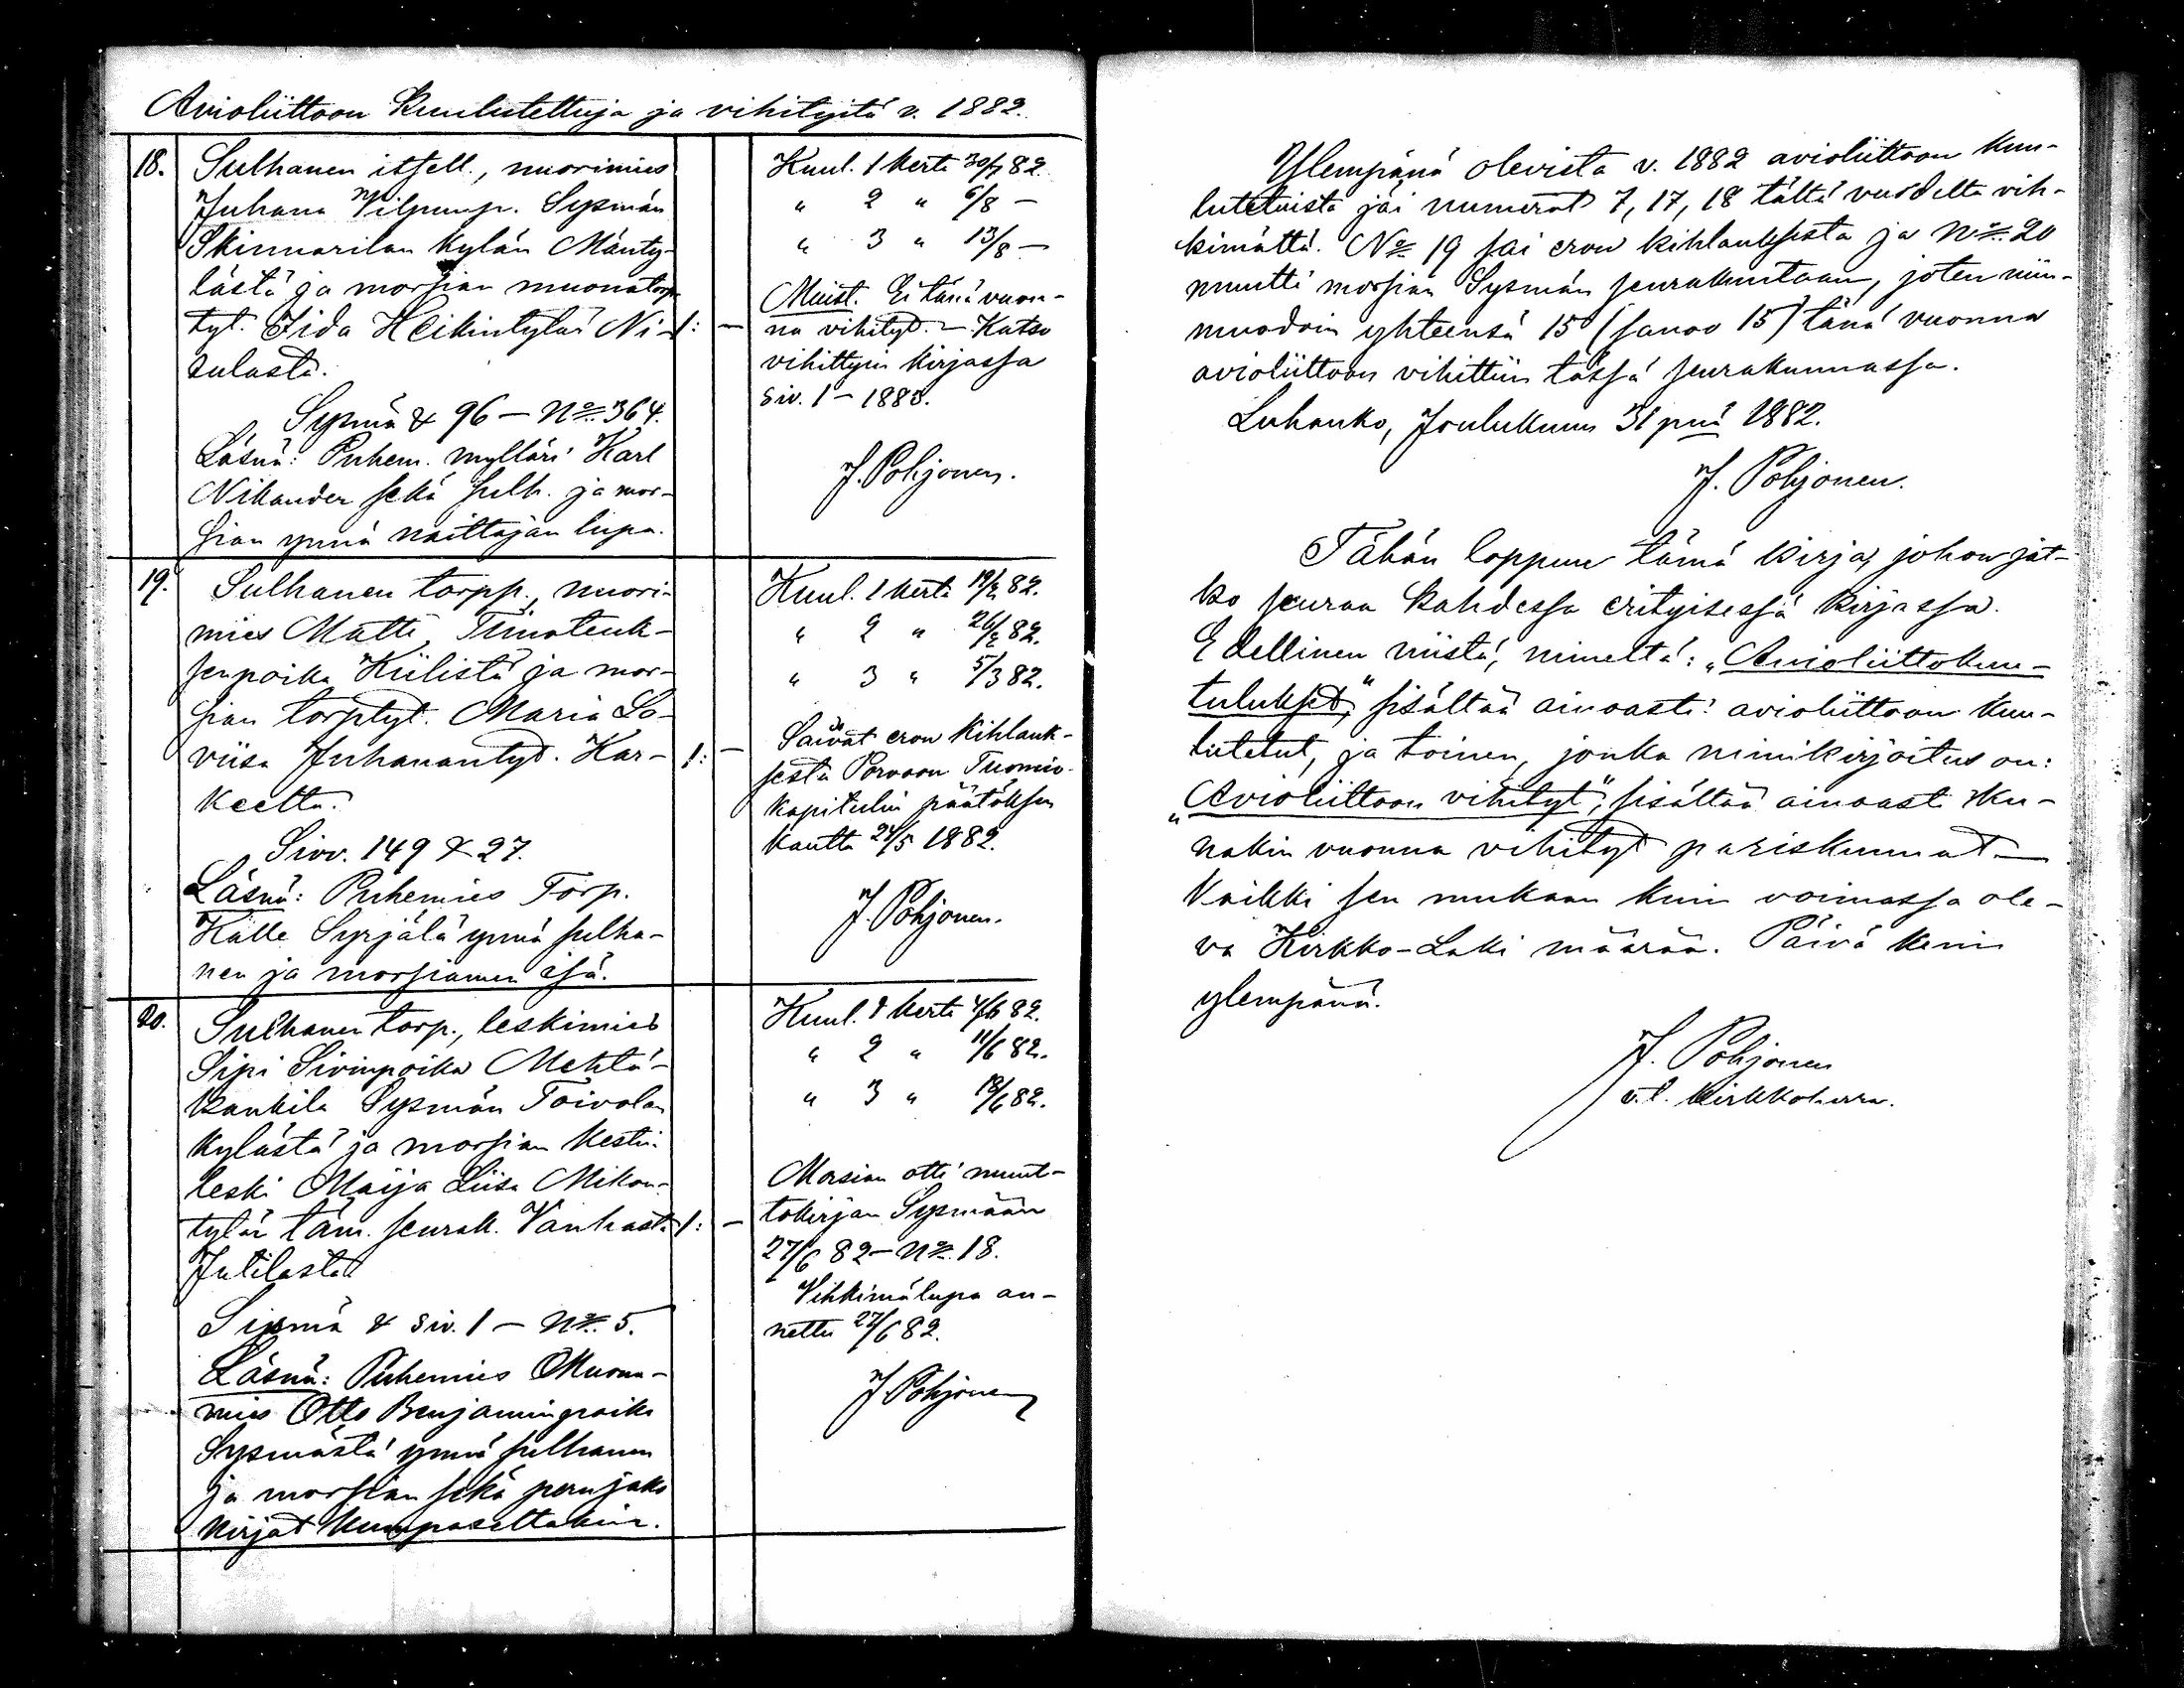 Avioliittoon Kuulutettuja ja vihityitä v. 1882.
18.
Sulhanen itsell., nuorimies
Juhana Vilpunp. Sysmän
Skinnarilan Kylän Mänty-
lästä ja morsian muonatorp
tyt. Iida Heikintytär Ni-
sulasta.
1: —
Sysmä & 96 — No 364.
Läsnä: Puhem. mylläri Karl
Nikander sekä sulh. ja mor-
sian ynnä naittajan lupa.
Kuul. 1 kerta 30/7 82.
" 2 " 6/8 —
" 3 " 13/8 —
Muist. Ei tänä vuon-
na vihityt. — Katso
vihittyin kirjassa
siv. 1 — 1883.
J. Pohjonen.
19.
Sulhanen torpp., nuori-
mies Matti Timoteuk-
senpoika Kiilistä ja mor-
sian torptyt. Maria Lo-
viisa Juhanantyt. Kar-
keelta.
1: —
Sivv. 149 & 27.
Läsnä: Puhemies Torp.
Kalle Syrjälä ynnä sulha-
nen ja morsiamen isä.
Kuul. 1 kerta 19/2 82.
" 2 " 26/2 82.
" 3 " 5/3 82.
Saivat eron kihlauk-
sesta Porvoon Tuomio-
kapitulin päätöksen
kautta 24/5 1882.
J. Pohjonen.
20.
Sulhanen torp., leskimies
Sipi Sivinpoika Mehtä-
kankila Sysmän Toivolan
kylästä ja morsian Kesti-
leski Maija Liisa Mikon-
tytär täm. seurak. Vanhasta
Jutilasta
1: —
Sysmä & siv. 1 — No 5.
Läsnä: Puhemies Muona-
mies Otto Benjaminpoika
Sysmästä ynnä sulhanen
ja morsian sekä perujako
kirjat kummaseltakin.
Kuul. 1 kerta 4/6 82.
" 2 " 11/6 82.
" 3 " 18/6 82.
Morsian otti muut-
tokirjan Sysmään
27/6 82 — No 18.
Vihkimälupa an-
nettu 27/6 82.
J Pohjonen
Ylempänä olevista v. 1882 avioliittoon kuu-
lutetuista jäi numerot 7, 17, 18 tältä vuodelta vih-
kimättä. No 19 sai eron kihlauksesta ja No 20
muutti morsian Sysmän seurakuntaan, joten niin-
muodoin yhteensä 15 (sanoo 15) tänä vuonna
avioliittoon vihittiin tässä seurakunnassa.
Luhanko, Joulukuun 31 pnä 1882.
J. Pohjonen.
Tähän loppuu tämä kirja, johon jat-
ko seuraa kahdessa erityisessä kirjassa.
Edellinen niistä, nimeltä: "Avioliittokuu-
tulukset," sisältää ainoasti avioliittoon kuu-
lutetut, ja toinen, jonka nimikirjoitus on:
"Avioliittoon vihityt", sisältää ainoasti ku-
nakin vuonna vihityt pariskunnat —
Kaikki sen mukaan kuin voimassa ole-
va Kirkko-Laki määrää. Päivä kuin
ylempänä.
J. Pohjonen
v.t. kirkkoherra.